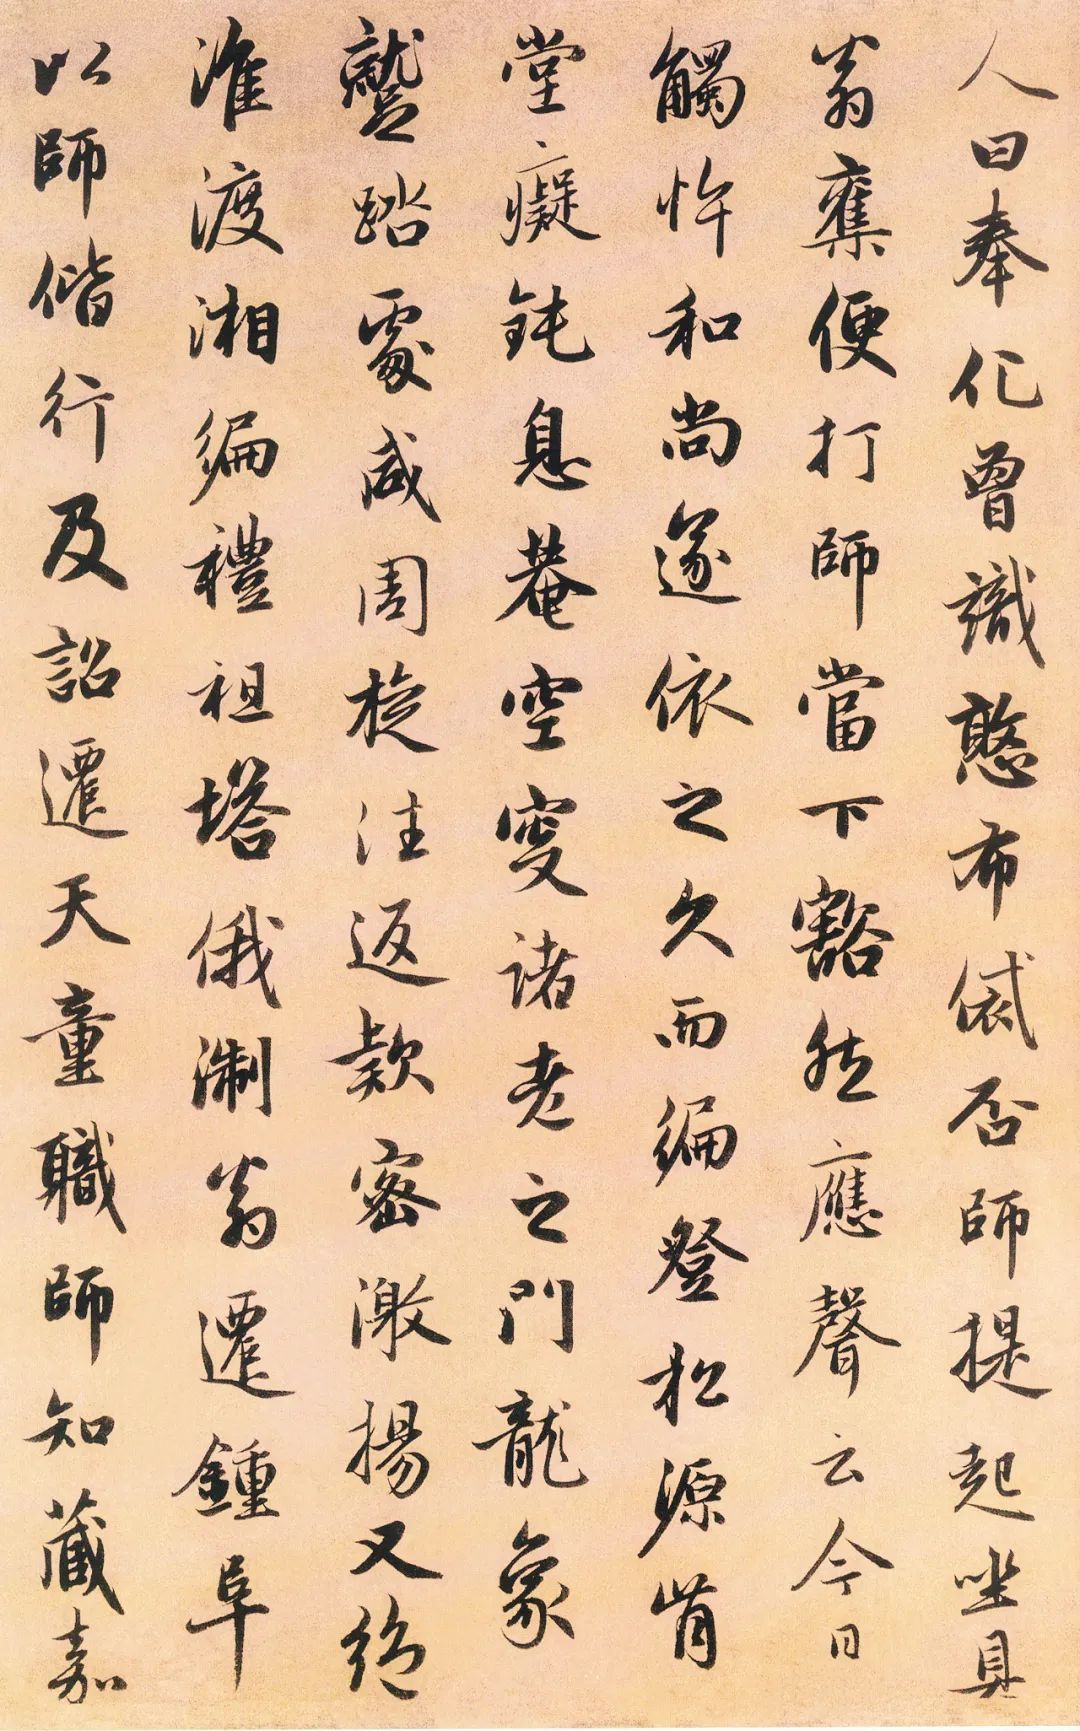 人曰奉化曾識憨布袋否師提起坐具
翁擬便打師當下豁然應聲云今日
觸忤和尚遂依之久而徧登松源肯
堂癡鈍息菴空叟諸老之門龍象
蹴踏處咸周旋注返款密激揚又絶
淮渡湘徧禮祖塔俄淛翁遷鍾阜
以師偕行及詔遷天童職師知藏嘉